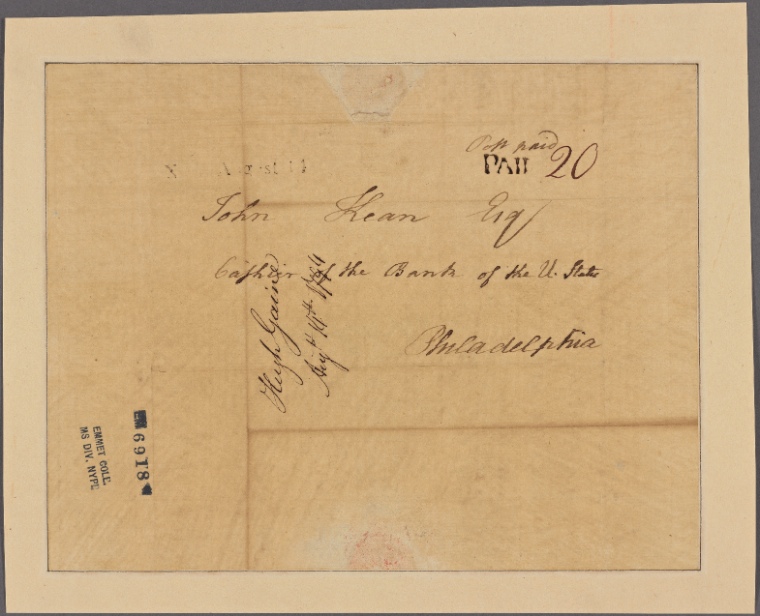 Post paid
PAID 20
August 14
John Kean Esq
Cashier of the Bank of the U. States
Philadelphia
Hugh Gaine
Augt 14th
EM 8199
EMMET COLL.
MS DIV. NYPL